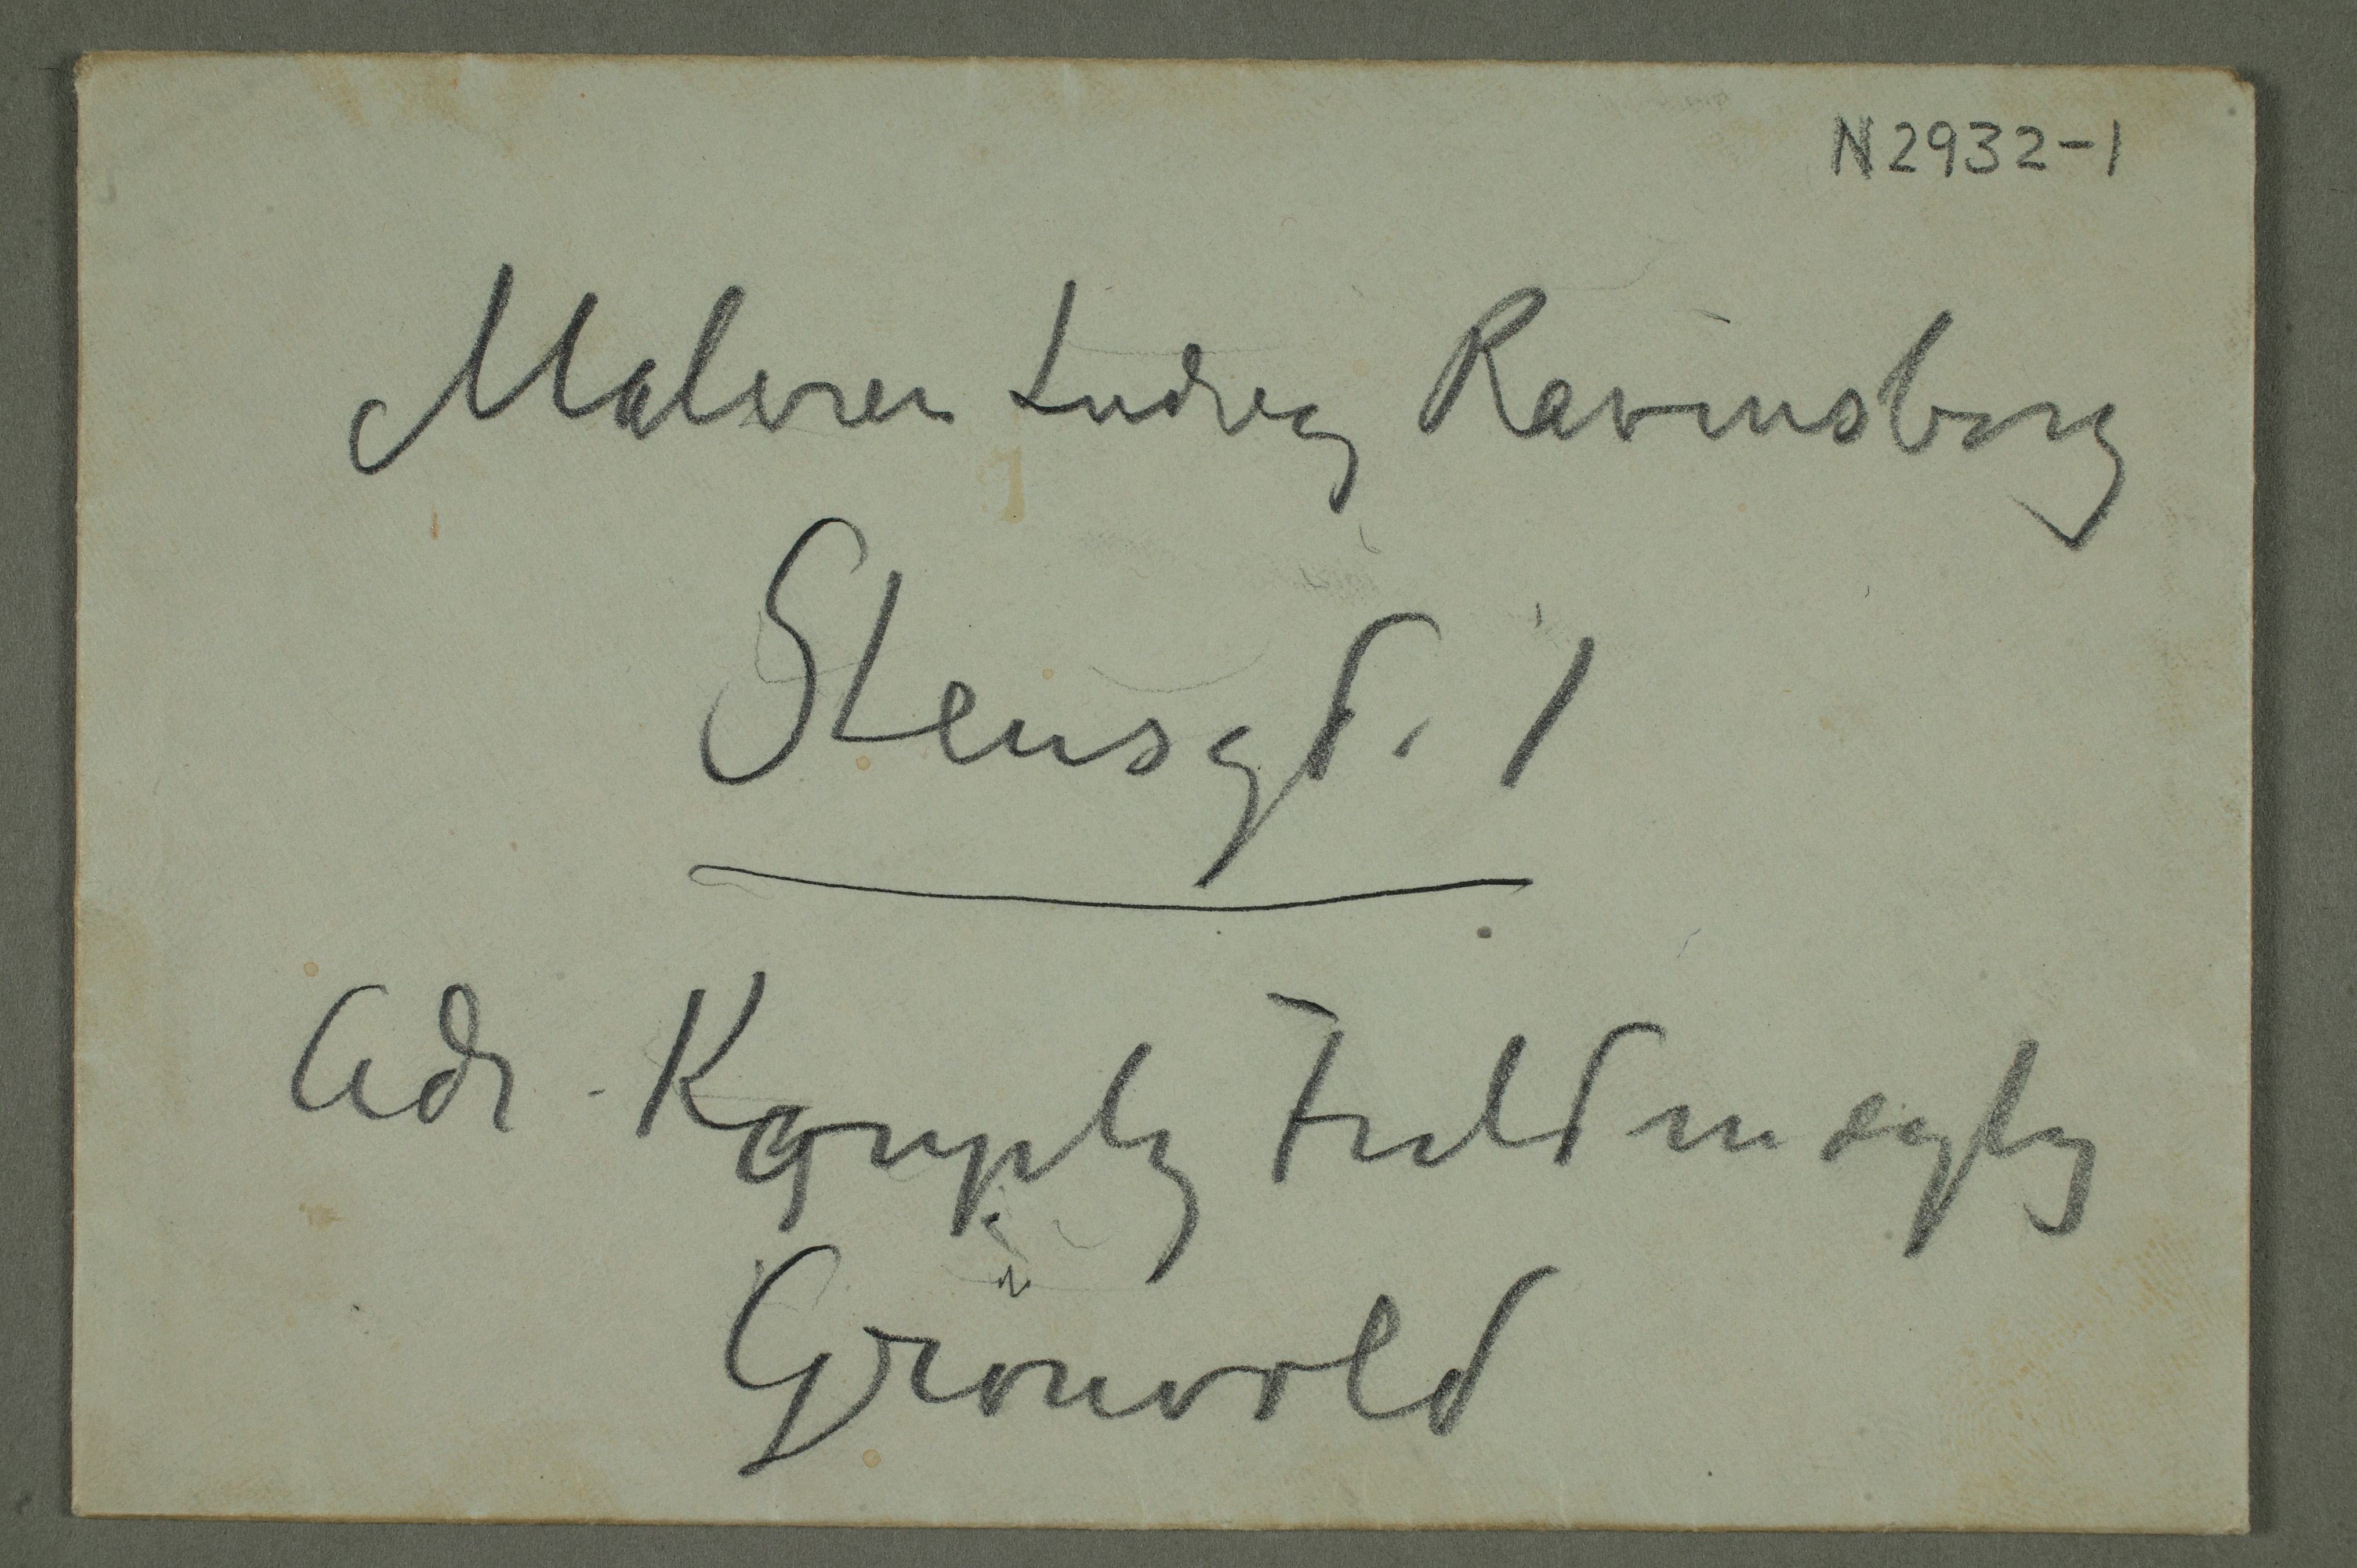 N2932-1
Maleren Ludvig Ravensberg
Stensgd. 1
Adr. Fuldmægtig
Grönvold